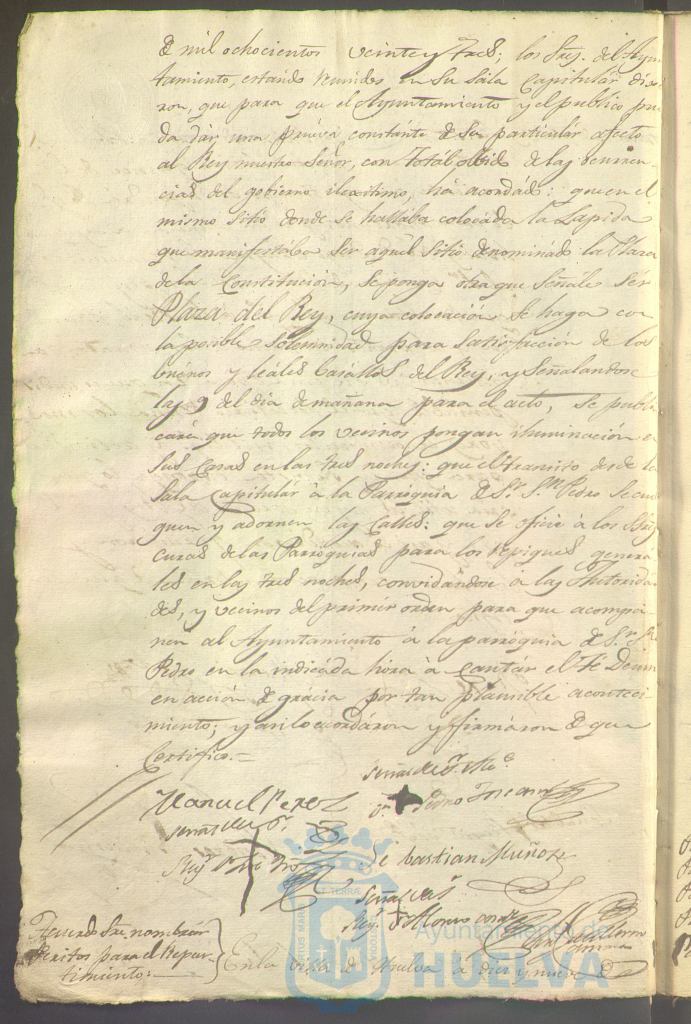 de mil ochocientos veinte y tres; los Sres. del Ayun
tamiento, estando reunidos en su Sala Capitulár dixe
ron, que para que el Ayuntamiento y el publico pue
da dár una prueva constante de su particulár afecto
al Rey nuestro Señor, con total olbido de las ocurren
cias del gobierno ilexitimo, há acordádo: que en el
mismo sitio donde se hallába colocáda la Lapida
que manifestába ser aquel sitio denominádo la Plaza
de la Constitución, se ponga otra que señále sér
Plaza del Rey, cuya colocación se haga con
la posible solemnidad para satisfacción de los
buenos y leáles basallos del Rey, y señalandose
las 9 del dia de mañana para el acto, se publi
cará que todos los vecinos pongan iluminación en
sus Casas en las tres noches: que el transito desde la
Sala Capitulár à la Parroquia de Sr. Sn. Pedro se cuel
guen y adornen las Calles: que se oficie à los Sres
curas de las Parroquias para los repiques genera
les en las tres noches, convidándose à las Autorida
des, y vecinos del primer orden para que acompa
ñen al Ayuntamiento à la parroquia de Sr. Sn.
Pedro en la indicáda hora à cantar el Te Deum
en acción de grácia por tan plausible aconteci
miento; y asi lo acordáron y firmáron de que
Certifico.=
Manuel Perez
Señal del Sr.
Sebastian Muñoz
Señal del Sr.
Regr. Alonso
Acuerdo sre. nombrár
Peritos para el Repar-
timiento.
En la Villa de Huelva à diez y nueve de
Ayuntamiento de
HUELVA